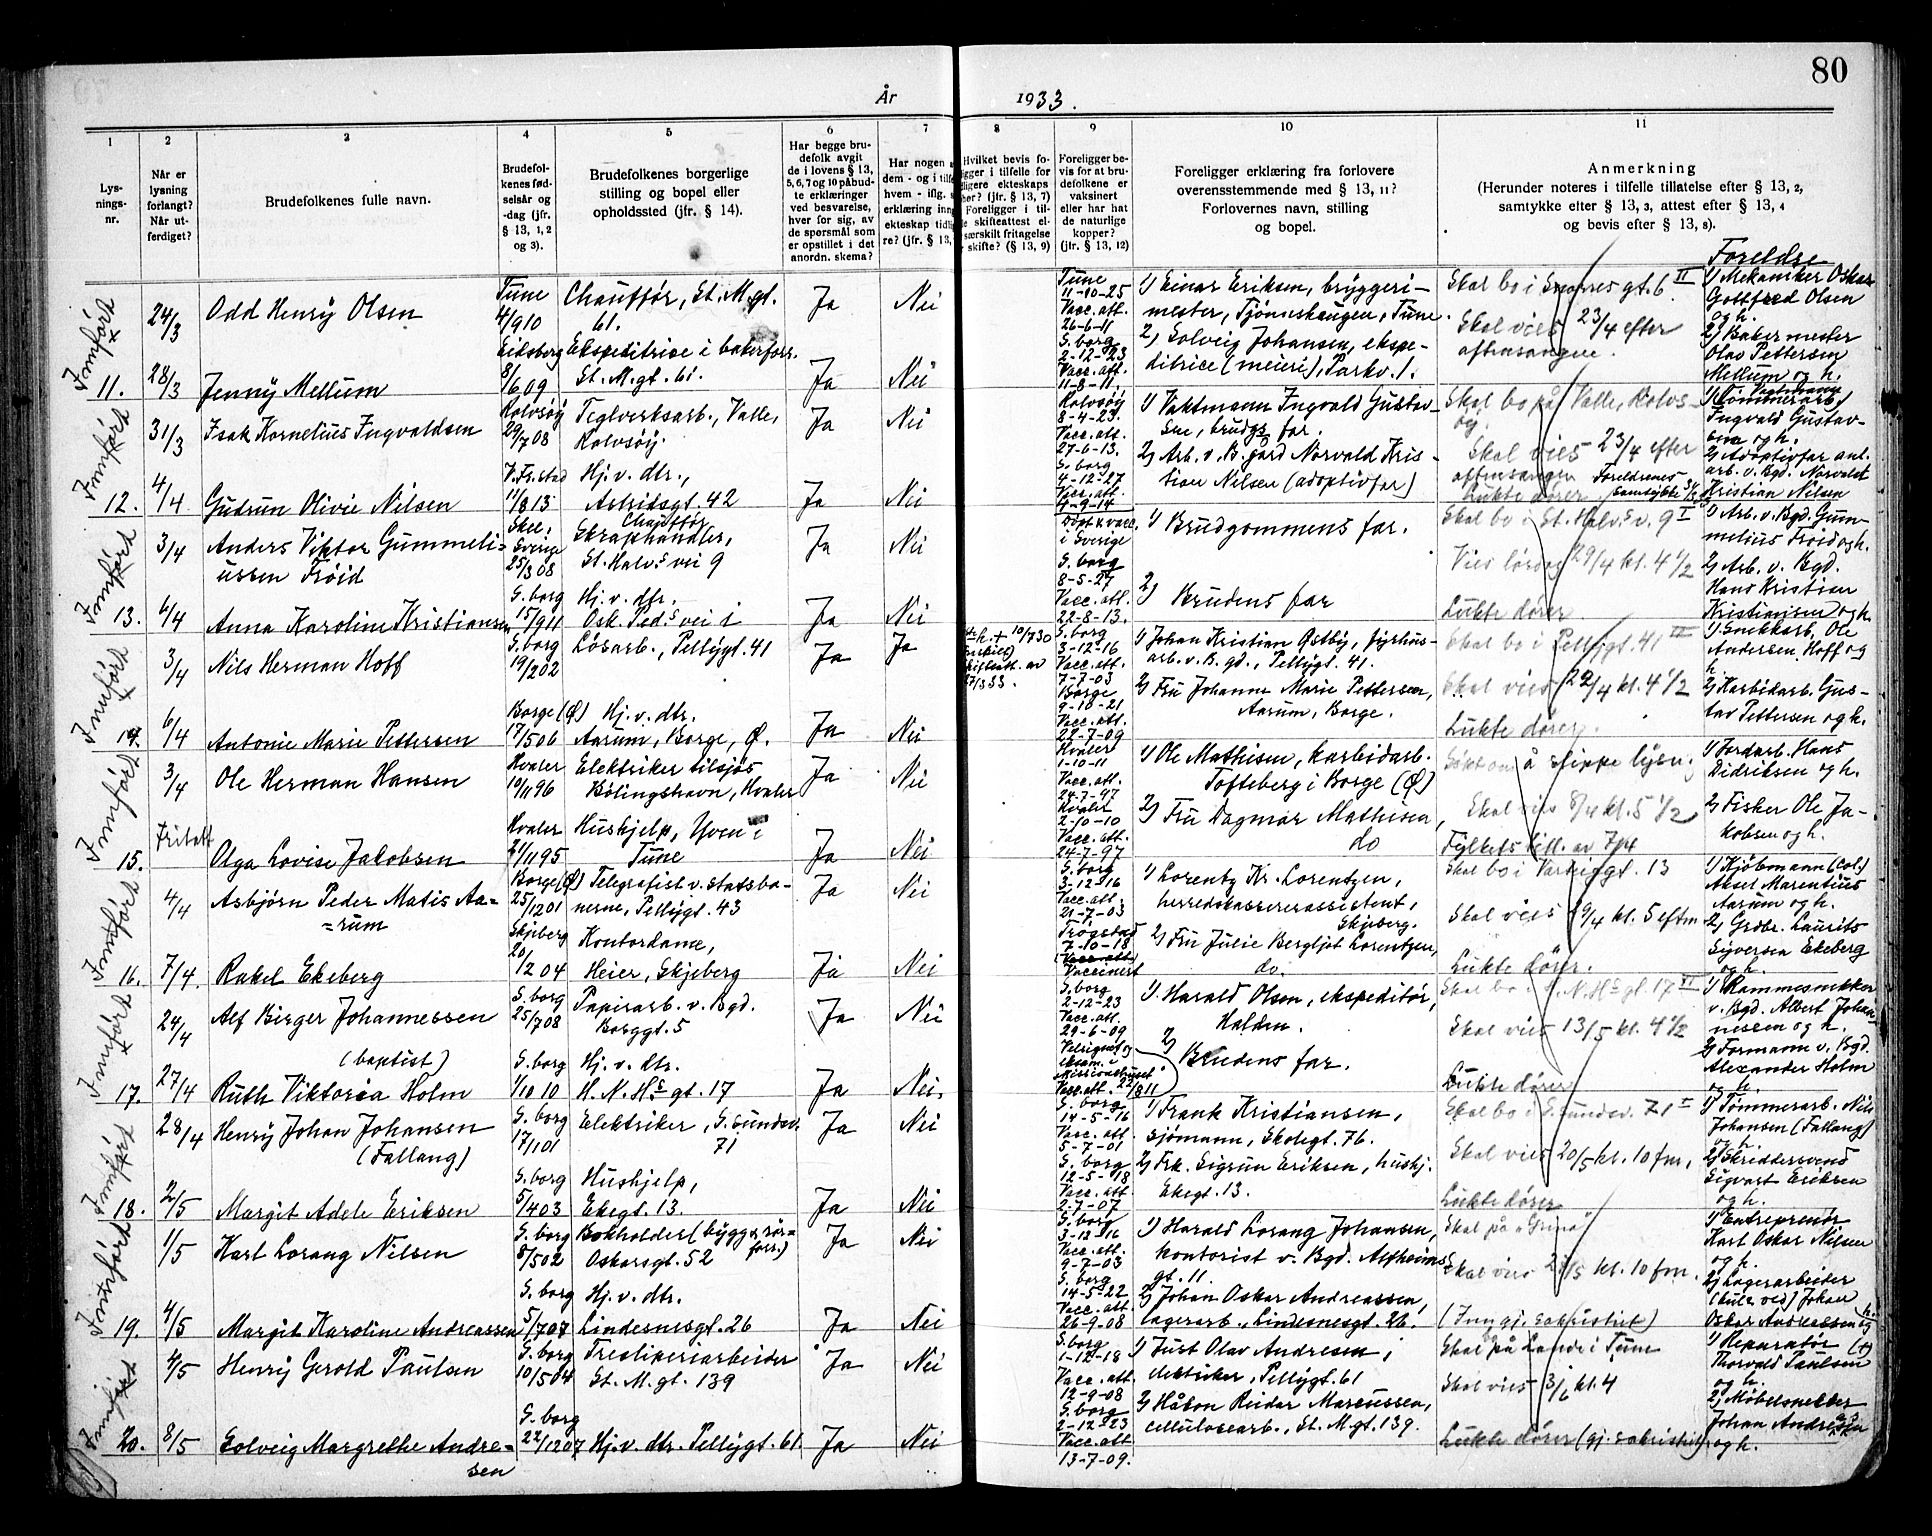 80
År 1933.
1
2
3
4
5
6
7
8
9
10
11
Lysnings-nr.
Når er lysning forlangt? Når utferdiget?
Brudefolkenes fulle navn.
Brudefolkenes fødselsår og -dag (jfr. § 13, 1, 2 og 3).
Brudefolkenes borgerlige stilling og bopel eller opholdssted (jfr. § 14).
Har begge brudefolk avgit de i lovens § 13, 5, 6, 7 og 10 påbudte erklæringer ved besvarelse, hver for sig, av de spørsmål som er opstillet i det anordn. skema?
Har nogen
dem - og i tilf
hvem - iflg.
erklæring inn
ekteskap tidl
re? (jfr. § 13,
Hvilket bevis fo-
ligger i tilfelle for
ligere ekteskaps
ber? (jfr. § 13, 7)
Foreligger i til-
e skifteattest el.
særskilt fritagelse
skifte? (§ 13, 9)
Foreligger bevis for at brudefolkene er vaksinert eller har hat de naturlige kopper? (jfr. § 13, 12)
Foreligger erklæring fra forlovere
overensstemmende med § 13, 11?
Forlovernes navn, stilling
og bopel.
Anmerkning
(Herunder noteres i tilfelle tillatelse efter § 13, 2,
samtykke efter § 13, 3, attest efter § 13, 4
og bevis efter § 13, 8).
Foreldre
Innført
11.
24/3
Odd Henry Olsen
Tune 4/910
Chauffør, St. M. gt. 61.
Ja
Nei
Tune 11-10-25 Vacc. att. 26-6-11
1) Einar Eriksen, bryggeri-
mester, Tjønnshaugen, Tune.
Skal vies 23/4 efter
aftensangen.
1) Mekaniker Oskar
Gottfred Olsen
og h.
28/3
Jenny Mellum
Eidsberg 8/609
Ekspeditrise i bakerforr.
St. M. gt. 61.
Ja
Nei
S. borg 2-12-23 Vacc. att. 11-8-11.
2) Solveig Johansen, ekspe-
ditrice (meieri), Parkv. 1.
2) Baker mester
Olav Pettersen
Mellum og h.
Innført
12.
31/3
Isak Kornelius Ingvaldsen
Rolvsøy 29/708
Teglverksarb., Valle,
Rolvsøy.
Ja
Nei
Rolvsøy 8-4-23. Vacc. att. 27-6-13.
1) Vaktmann Ingvald Gustav-
sen, brudgs far.
Skal bo på Valle, Rolvs-
øy.
Skal vies 23/4 efter
aftensangen
Foreldrenes samtykke
Lukte dører
Ingvald Gustav-
sen og h.
4/4
Gudrun Olivie Nilsen
V. Fr. stad 11/813
Hj. v. dtr.,
Astridsgt. 42
Ja
Nei
S. borg 4-12-27 Vacc. att. 9-9-14
2) Arb. v. B. gård Norvald Kris-
tian Nilsen (adoptivfar)
2) Adoptivfar anl.
arb. v. Bgd. Norvald
Kristian Nilsen
Innført
13.
3/4
Anders Viktor Gummeli-
ussen Frøid
Skee, Sverige 25/308
Chauffør
Skraphandler,
St. Halv.s vei 9
Ja
Nei
Døpt & vacc. i Sverige
1) Brudgommens far.
Skal bo i St. Halv.s v. 9 I
Vies lørdag 29/4 kl. 4 1/2
Lukte dører
1) Arb. v. Bgd. Gum-
melius Frøid og h.
4/4
Anna Karoline Kristiansen
S. borg 15/911
Hj. v. dtr.
Osk. Ped.s vei 1
Ja
Nei
S. borg 8-5-27 Vacc. att. 22-8-13.
2) Brudens far
2) Arb. v. Bgd.
Hans Kristian
Kristiansen og h.
Innført
14.
3/4
Nils Herman Hoff
S. borg 19/202
Løsarb., Pellygt. 41
Ja
Ja
h. + 10/730
S. borg 3-12-16 Vacc. att. 7-7-03
1) Johan Kristian Østby, fyrhus-
arb. v. B. gd., Pellygt. 41.
Skal bo i Pellygt. 41 III
Skal vies 22/4 kl. 4 1/2
Lukte dører.
1) Snikkarb. Ole
Andersen Hoff og
h.
6/4
Antonie Marie Pettersen
Borge (Ø) 17/506
Hj. v. dtr.
Aarum, Borge, Ø.
Ja
Nei
Borge 9-10-21 Vacc. att. 22-7-09
2) Fru Johanne Marie Pettersen,
Aarum, Borge.
2) Karbidarb. Gus-
tav Pettersen og h.
Innført
15.
3/4
Ole Herman Hansen
Hvaler 10/1196
Elektriker tilsjøs
Bølingshavn, Hvaler
Ja
Nei
Hvaler 1-10-11 Vacc. att. 24-7-97
1) Ole Mathisen, karbidarb.
Tofteberg i Borge (Ø)
Søkt om å slippe lysn.
Skal vies 8/4 kl. 5 1/2
Fylkets till. av 7/4
1) Jordarb. Hans
Didriksen og h.
Fritatt
Olga Lovise Jakobsen
Hvaler 21/1195
Hushjelp, Yven i
Tune
Ja
Nei
Hvaler 2-10-10 Vacc. att. 24-7-97
2) Fru Dagmar Mathisen,
do
2) Fisker Ole Ja-
kobsen og h.
Innført
16.
4/4
Asbjørn Peder Matis Aa-
=rum
Borge (Ø) 25/1201
Telegrafist v. statsba-
nerne, Pellygt. 43
Ja
Nei
S. borg 3-12-16 Vacc. att. 21-7-03
1) Lorentz Kr. Lorentzen,
herredskassererassistent,
Skjeberg.
Skal vies 29/4 kl. 5 eftm
Lukte dører.
1) Kjøbmann (Col.)
Aksel Marentius
Aarum og h.
7/4.
Rakel Ekeberg
Skjeberg 20/1204
Kontordame,
Heier, Skjeberg
Ja
Nei
Trøgstad 7-10-18 Vaccinert
2) Fru Julie Bergljot Lorentzen,
do.
2) Grdbr. Laurits
Syversen Ekeberg
og h.
Innført
17.
24/4
Alf Birger Johannessen
(baptist)
S. borg 25/708
Papirarb. v. Bgd.
Borggt. 5
Ja
Nei
S. borg 2-12-23 Vacc. att. 29-6-09
1) Harald Olsen, ekspeditør,
Halden.
Skal vies 13/5 kl. 4 1/2
Lukte dører
1) Rammesnikker
v. Bgd. Albert Johan-
nessen og h.
27/4
Ruth Viktoria Holm
S. borg 1/1010
Hj. v. dtr.
H. N. H.s gt. 17
Ja
Nei.
2) Brudens far.
2) Formann v. Bgd.
Alexander Holm
og h.
Innført
18.
28/4
Henry Johan Johansen
(Fallang)
S. borg 17/101
Elektriker, S. Sundev.
71
Ja
Nei
S. borg 14-5-16 Vacc. att. 5-7-01
1) Frank Kristiansen,
sjømann, Skolegt. 76.
Skal bo i S. sundev. 71 I
Skal vies 20/5 kl. 10 fm.
Lukte dører
1) Tømmerarb. Nils
Johansen (Fallang)
og h.
2/5
Margit Adele Eriksen
S. borg 5/403
Hushjelp,
Ekegt. 13.
Ja
Nei
S. borg 12-5-18 Vacc. att. 2-7-07
2) Frk. Sigrun Eriksen, hushj.
Ekegt. 13.
2) Skreddersvend
Sigvart Eriksen
og h.
Innført
19.
1/5
Kart Lorang Nilsen
S. borg 8/502
Bokholder (bygg & rør-
forr.)
Oskarsgt. 52
Ja
Nei
S. borg 3-12-16 Vacc. att. 9-7-03
1) Harald Lorang Johansen,
kontorist v. Bgd. Alfheims-
gt. 11.
Skal vies kl. 10 fm.
1) Entreprenør
Kart Oskar Nilsen
og h.
4/5
Margit Karoline Andreassen
S. borg 5/707
Hj. v. dtr.
Lindesnesgt. 26
Ja
Nei
S. borg 14-5-22 Vacc. att. 26-9-08
2) Johan Oskar Andreassen,
lagerarb., Lindesnesgt. 26.
2) Lagerarbeider
Johan
Oskar Andreassen og h.
Innført
20.
4/5
Henry Gerold Paulsen
S. borg 10/504
Tresliperiarbeider
St. M. gt. 139
Ja
Nei
S. borg 1-12-18 Vacc. att. 12-9-08
1) Just Olav Andresen,
elektriker, Pellygt. 61
Skal på Lande i Tune
Skal vies 3/6 kl. 4
Lukte dører (gj. sakristiet)
1) Reparatør (+)
Thorvald Paulsen
og h.
8/5
Solveig Margrethe Andre-
sen
S. borg 22/1207
Hj. v. dtr. Pellygt. 61
Ja
Nei
S. borg 2-12-23 Vacc. att 13-7-09.
2) Håkon Reidar Marcussen,
cellulosearb., St. M. gt. 139.
2) Møbelsnekker
Johan Andresen
og h.